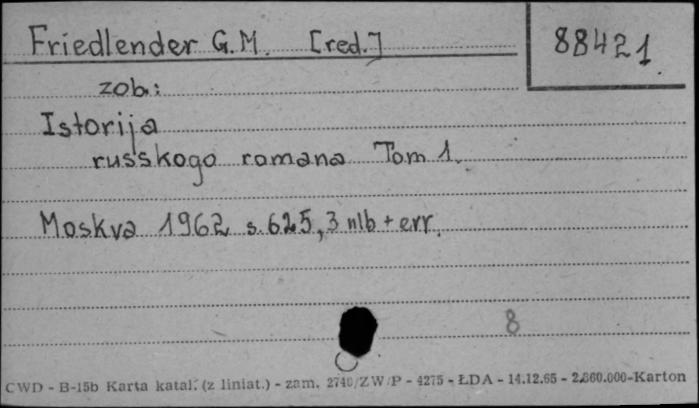 Friedlender G.M. [red.]
88421
zob.:
Istorija
russkogo romana Tom 1.
Moskva 1962 s. 625, 3 nlb + err.
8
CWD - B-15b Karta katal. (z liniat.) - zam. 2740/ZW/P - 4275 - ŁDA - 14.12.65 - 2.860.000-Karton